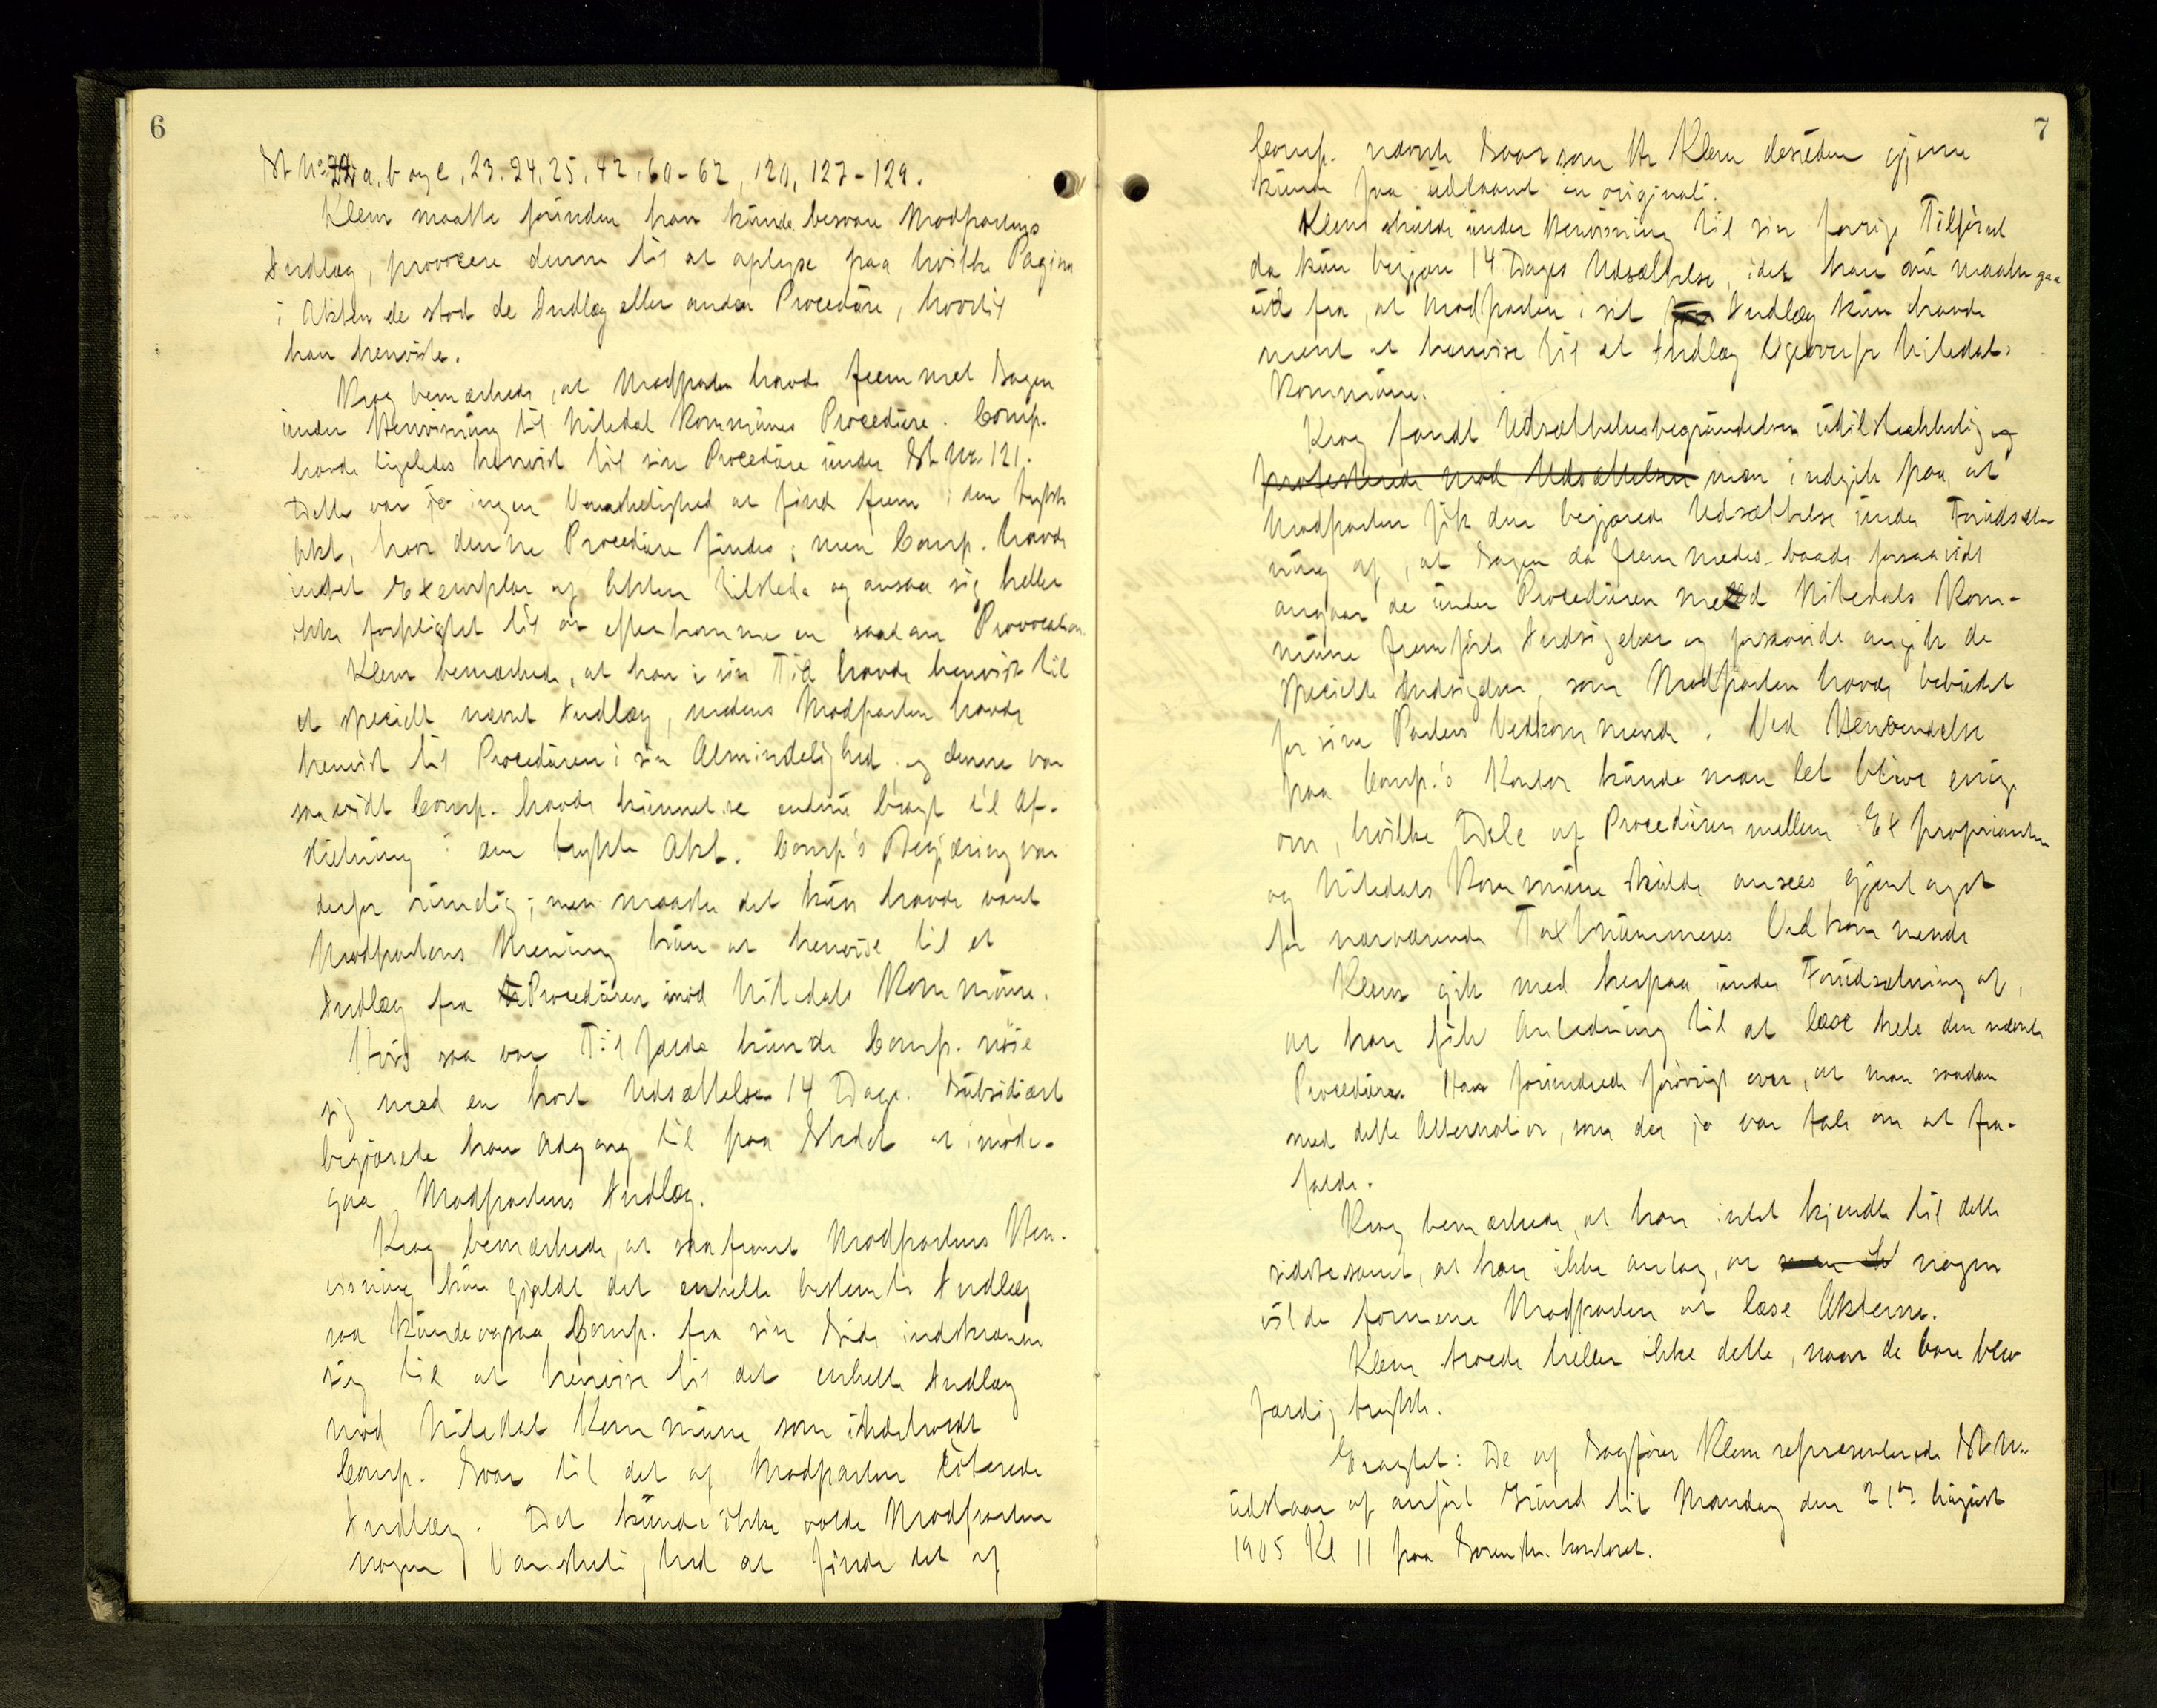 6
St. No 22 a, b og c, 23. 24. 25. 42. 60-62, 120, 127-129.
Klem maatte forinden han kunde besvare Modpartens
Indlæg, provocere denne til at oplyse paa hvilke Pagina
i Akten de stod de Indlæg eller anden Procedüre, hvortil
han henviste.
Krag bemærkede, at Modparten havde fremmet Sagen
under Henvisning til Nitedal Kommunes Procedüre. Comp.
havde ligeledes henvist til sin Procedüre under St. No. 121.
Dette var jo ingen Vanskelighed at finde frem i den trykte
Akt, hvor denne Procedüre findes; men Comp. havde
intet Exemplar af Akten tilstede og ansaa sig heller
ikke forpligtet til at efterkomme en saadan Provocation.
Klem bemærkede, at han i sin Tid havde henvist til
et specielt nævnt Indlæg, medens Modparten havde
henvist til Procedüren i sin Almindelighed og denne var
saavidt Comp. havde kunnet se endnu bragt til Af-
slutning i den trykte Akt. Comp's Begjæring var
derfor rimelig; men maaske det kun havde vært
Modpartens Mening kun at henvise til et
Indlæg fra Procedüren mod Nitedals Kommune.
Hvis saa var Tilfælde kunde Comp. nøie
sig med en kort Udsættelse 14 Dage. Subsidiært
begjærede han Adgang til paa Stedet at imøde-
gaa Modpartens Indlæg.
Krag bemærkede, at saafremt Modpartens Hen-
visning kun gjaldt det enkelte bestemte Indlæg
saa kunde ogsaa Comp. fra sin Side indskrænke
sig til at henvise til det enkelte Indlæg
mod Nitedal Kommune som indeholdt
Comp. Svar til det af Modparten citerede
Indlæg. Det kunde ikke volde Modparten
nogen Vanskelighed at finde det af
7
Comp. nævnte Svar som Hr Klem desuden gjerne
kunde faa udlaant in originali.
Klem skulde under Henvisning til sin forrige Tilførsel
da kun begjære 14 Dages Udsættelse, idet han nu maatte gaa
ud fra, at Modparten i sit Indlæg kun havde
ment at henvise til et Indlæg ligeoverfor Nitedals
Kommune.
Krag fandt Udsættelsesbegrundelsen utilstrækkelig og
protesterede mod Udsættelsen men indgik paa, at
Modparten fik den begjærede Udsættelse under Forudsæt-
ning af, at Sagen da fremmedes baade forsaavidt
angaar de under Procedüren med Nitedals Kom-
mune fremførte Indsigelser og forsaavidt angik de
specielle Indsigelser, som Modparten havde bebudet
for sine Parters Vedkommende. Ved Henvendelse
paa Comp.'s Kontor kunde man let blive enig
om, hvilke Dele af Procedüren mellem Exproprianten
og Nitedals Kommune skulde ansees gjentaget
for nærværende Taxtnummeres Vedkommende
Klem gik med herpaa under Forudsætning af,
at han fik Anledning til at læse hele den nævnte
Procedüre. Han forundrede forøvrigt over, at man saadan
med dette Alternativ, som der jo var tale om at fra-
falde.
Krag bemærkede, at han intet kjendte til dette
sidste samt, at han ikke antog, at nogen
vilde formene Modparten at læse Akterne.
Klem troede heller ikke dette, naar de bare blev
færdig trykte.
Eragtet: De af Sagfører Klem repræsenterede St. No.
udstaar af anført Grund til Mandag den 21de August
1905 Kl 11 paa Sorenskr. kontoret.